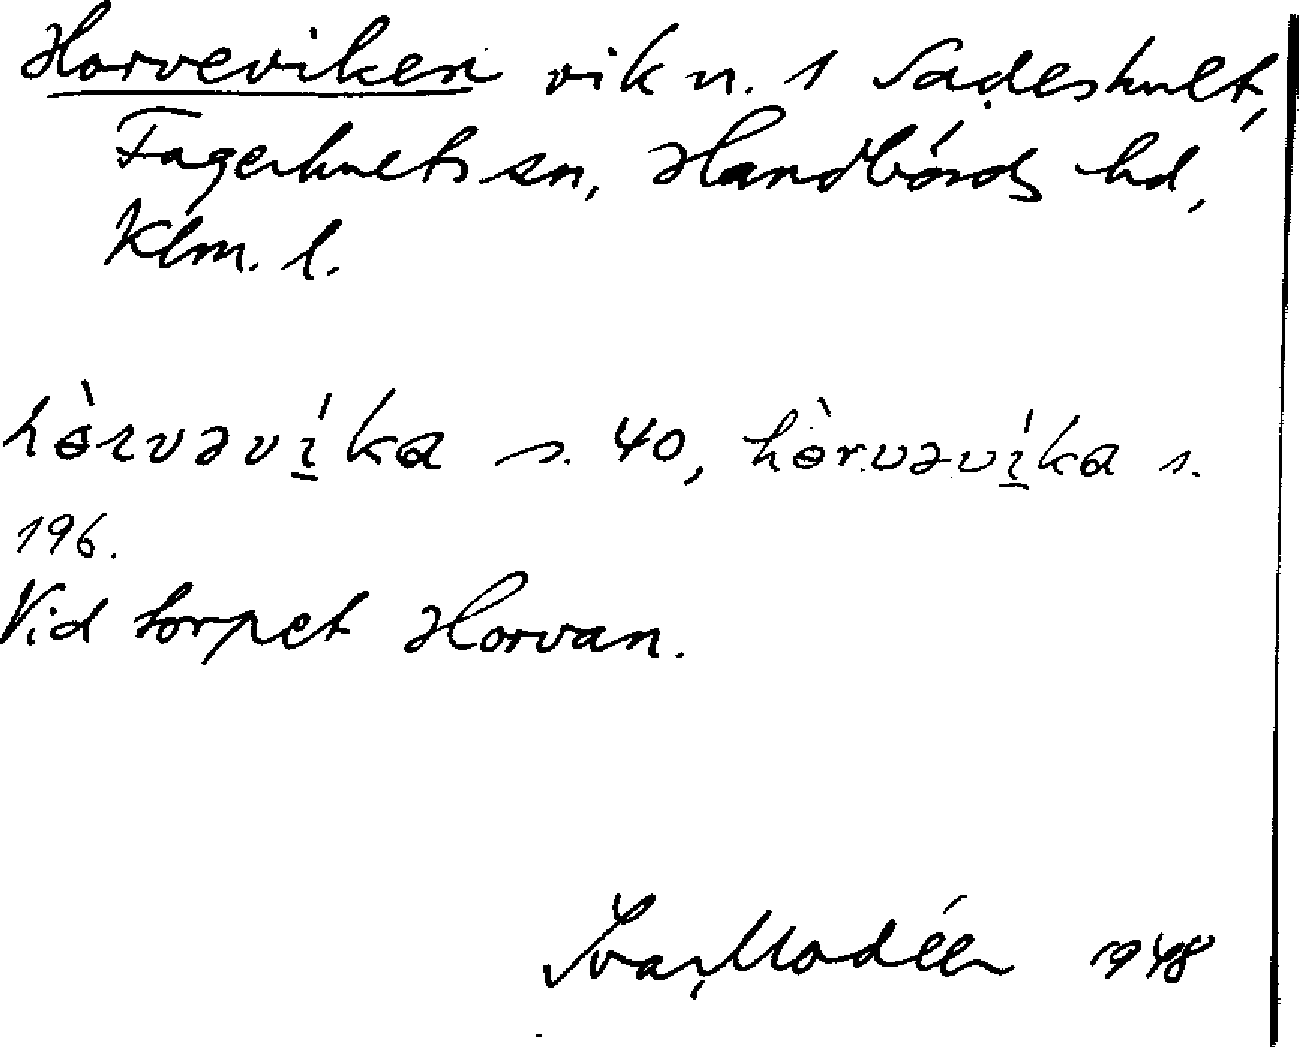 Horveviken vik n. 1 Sadeshult,
Fagerhults sn, Handbörds hd,
Klm. l.
hὲrvəvi̱ka s. 40, hὲrvəvi̱ka s.
196.
Vid torpet Horvan.
Ivar Modéer 1948